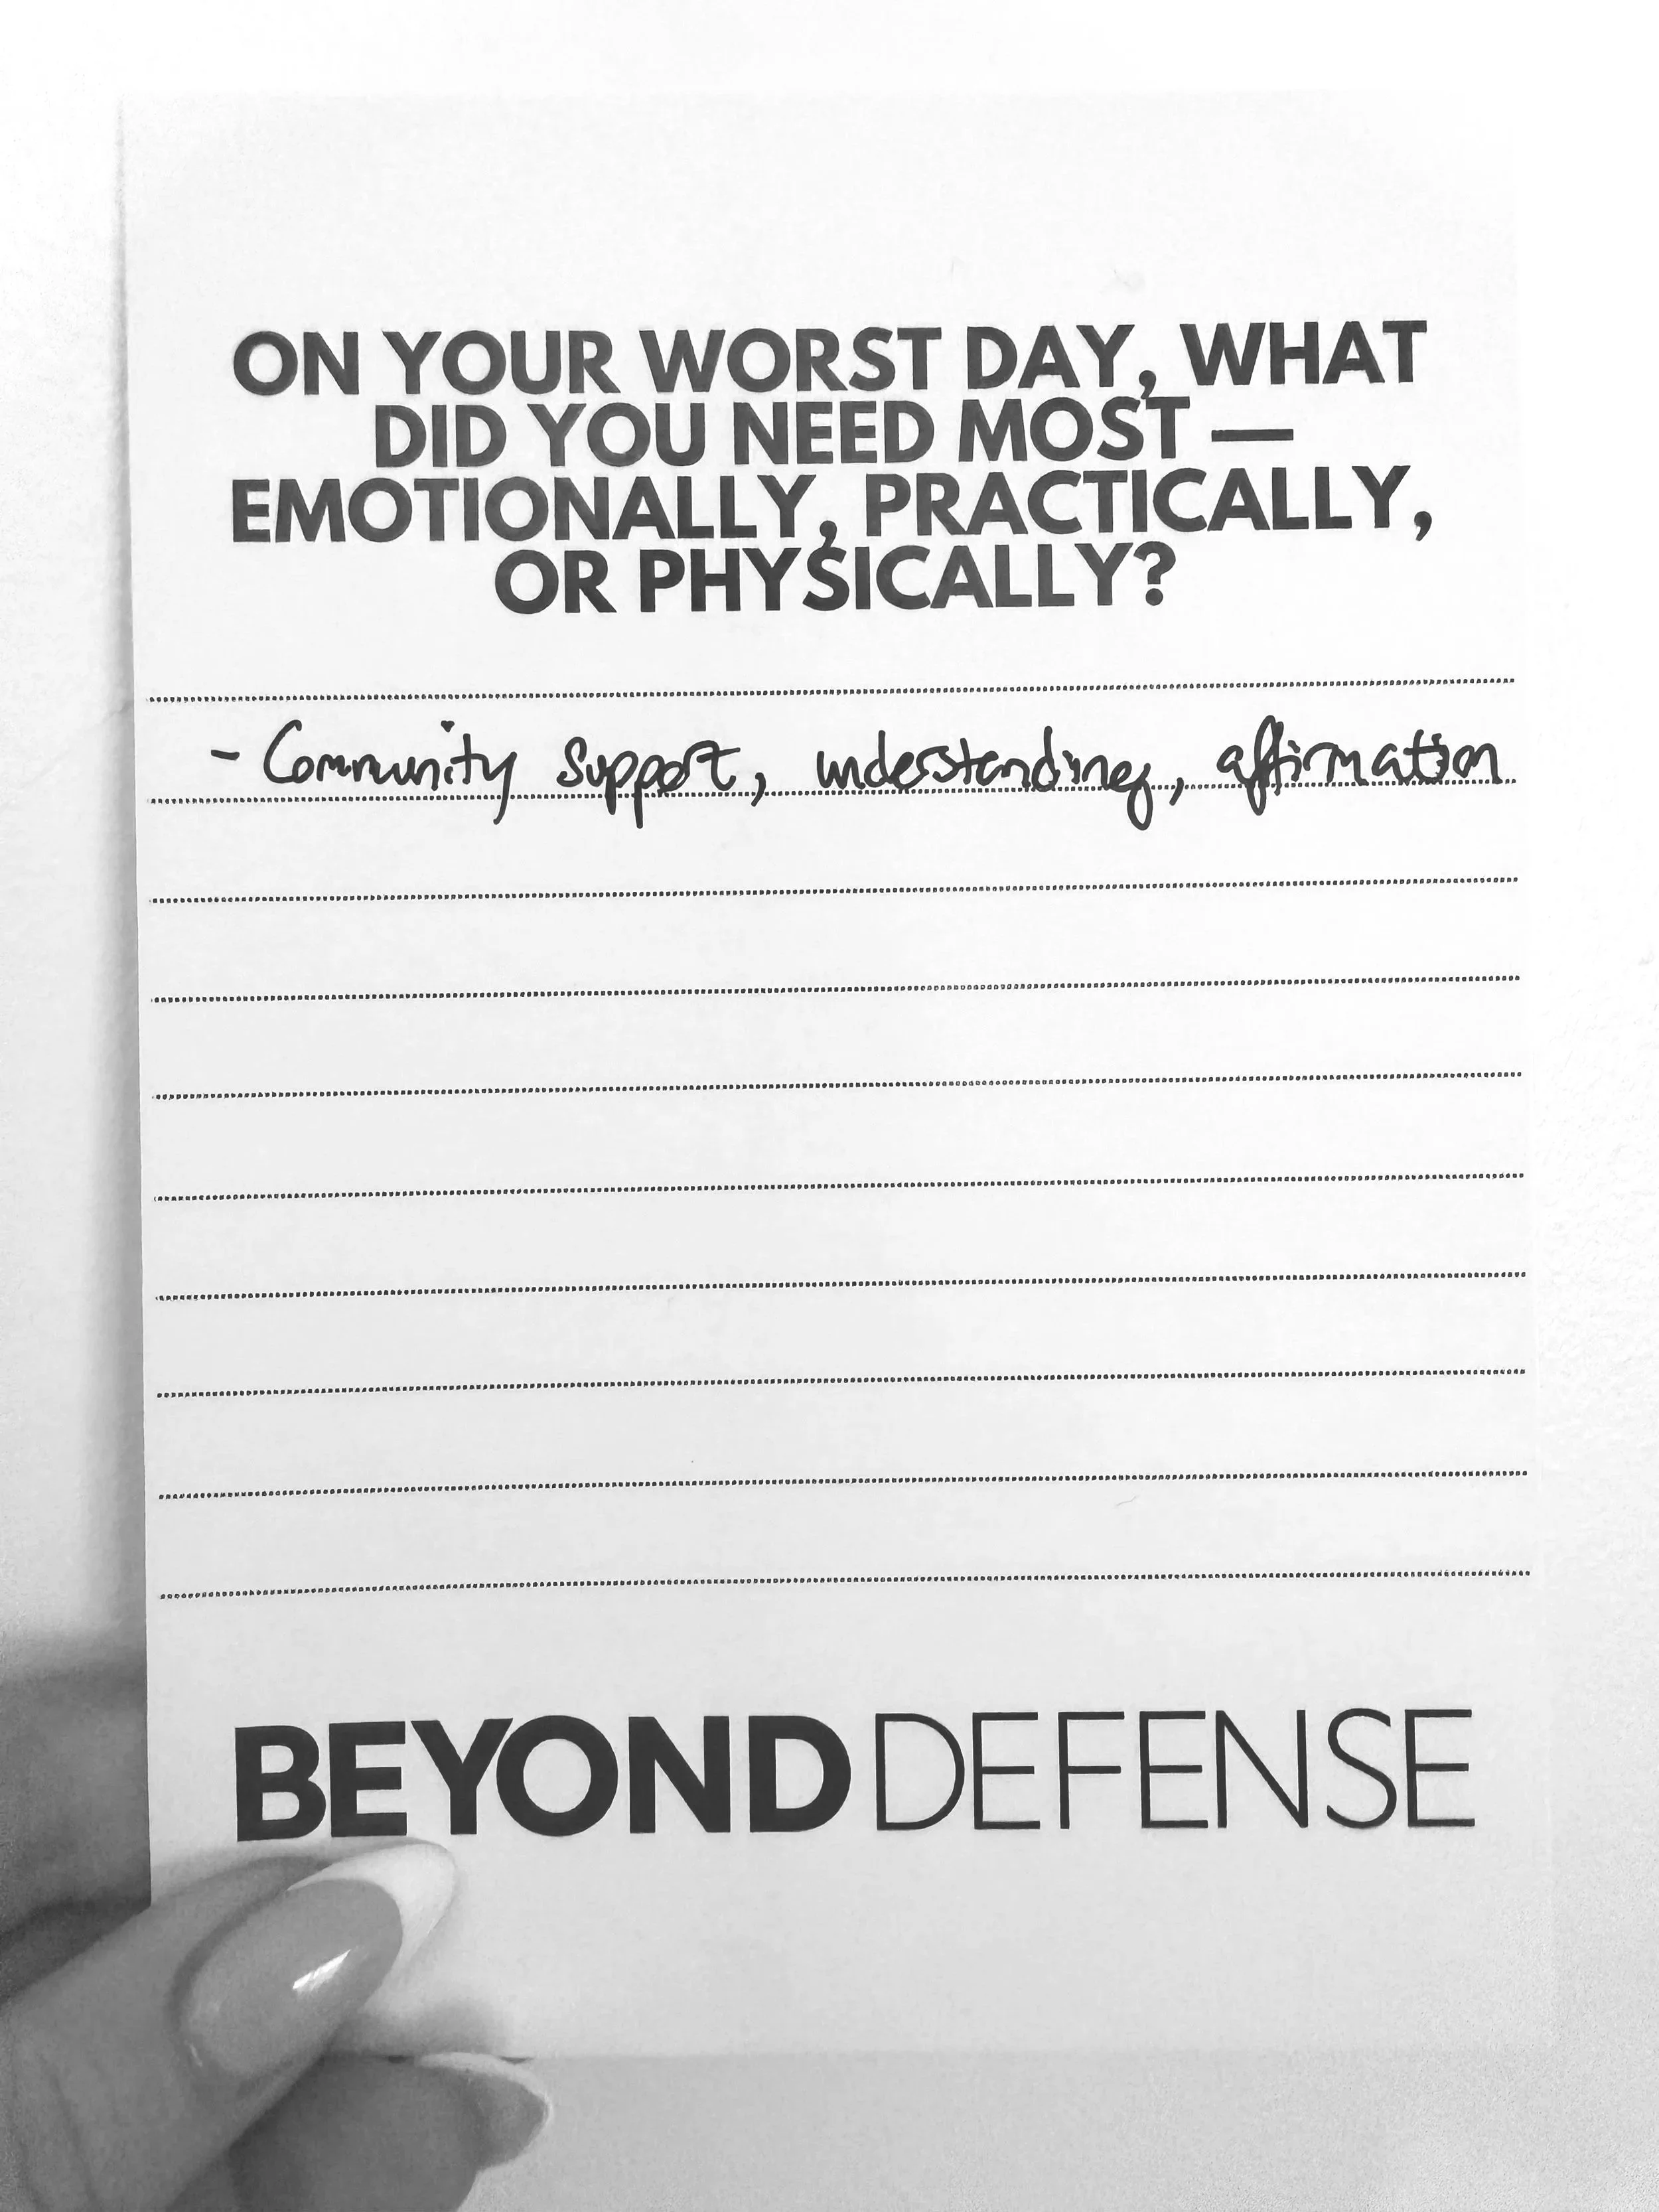 ON YOUR WORST DAY, WHAT
DID YOU NEED MOST —
EMOTIONALLY, PRACTICALLY,
OR PHYSICALLY?
- Community support, understanding, affirmation
BEYOND DEFENSE